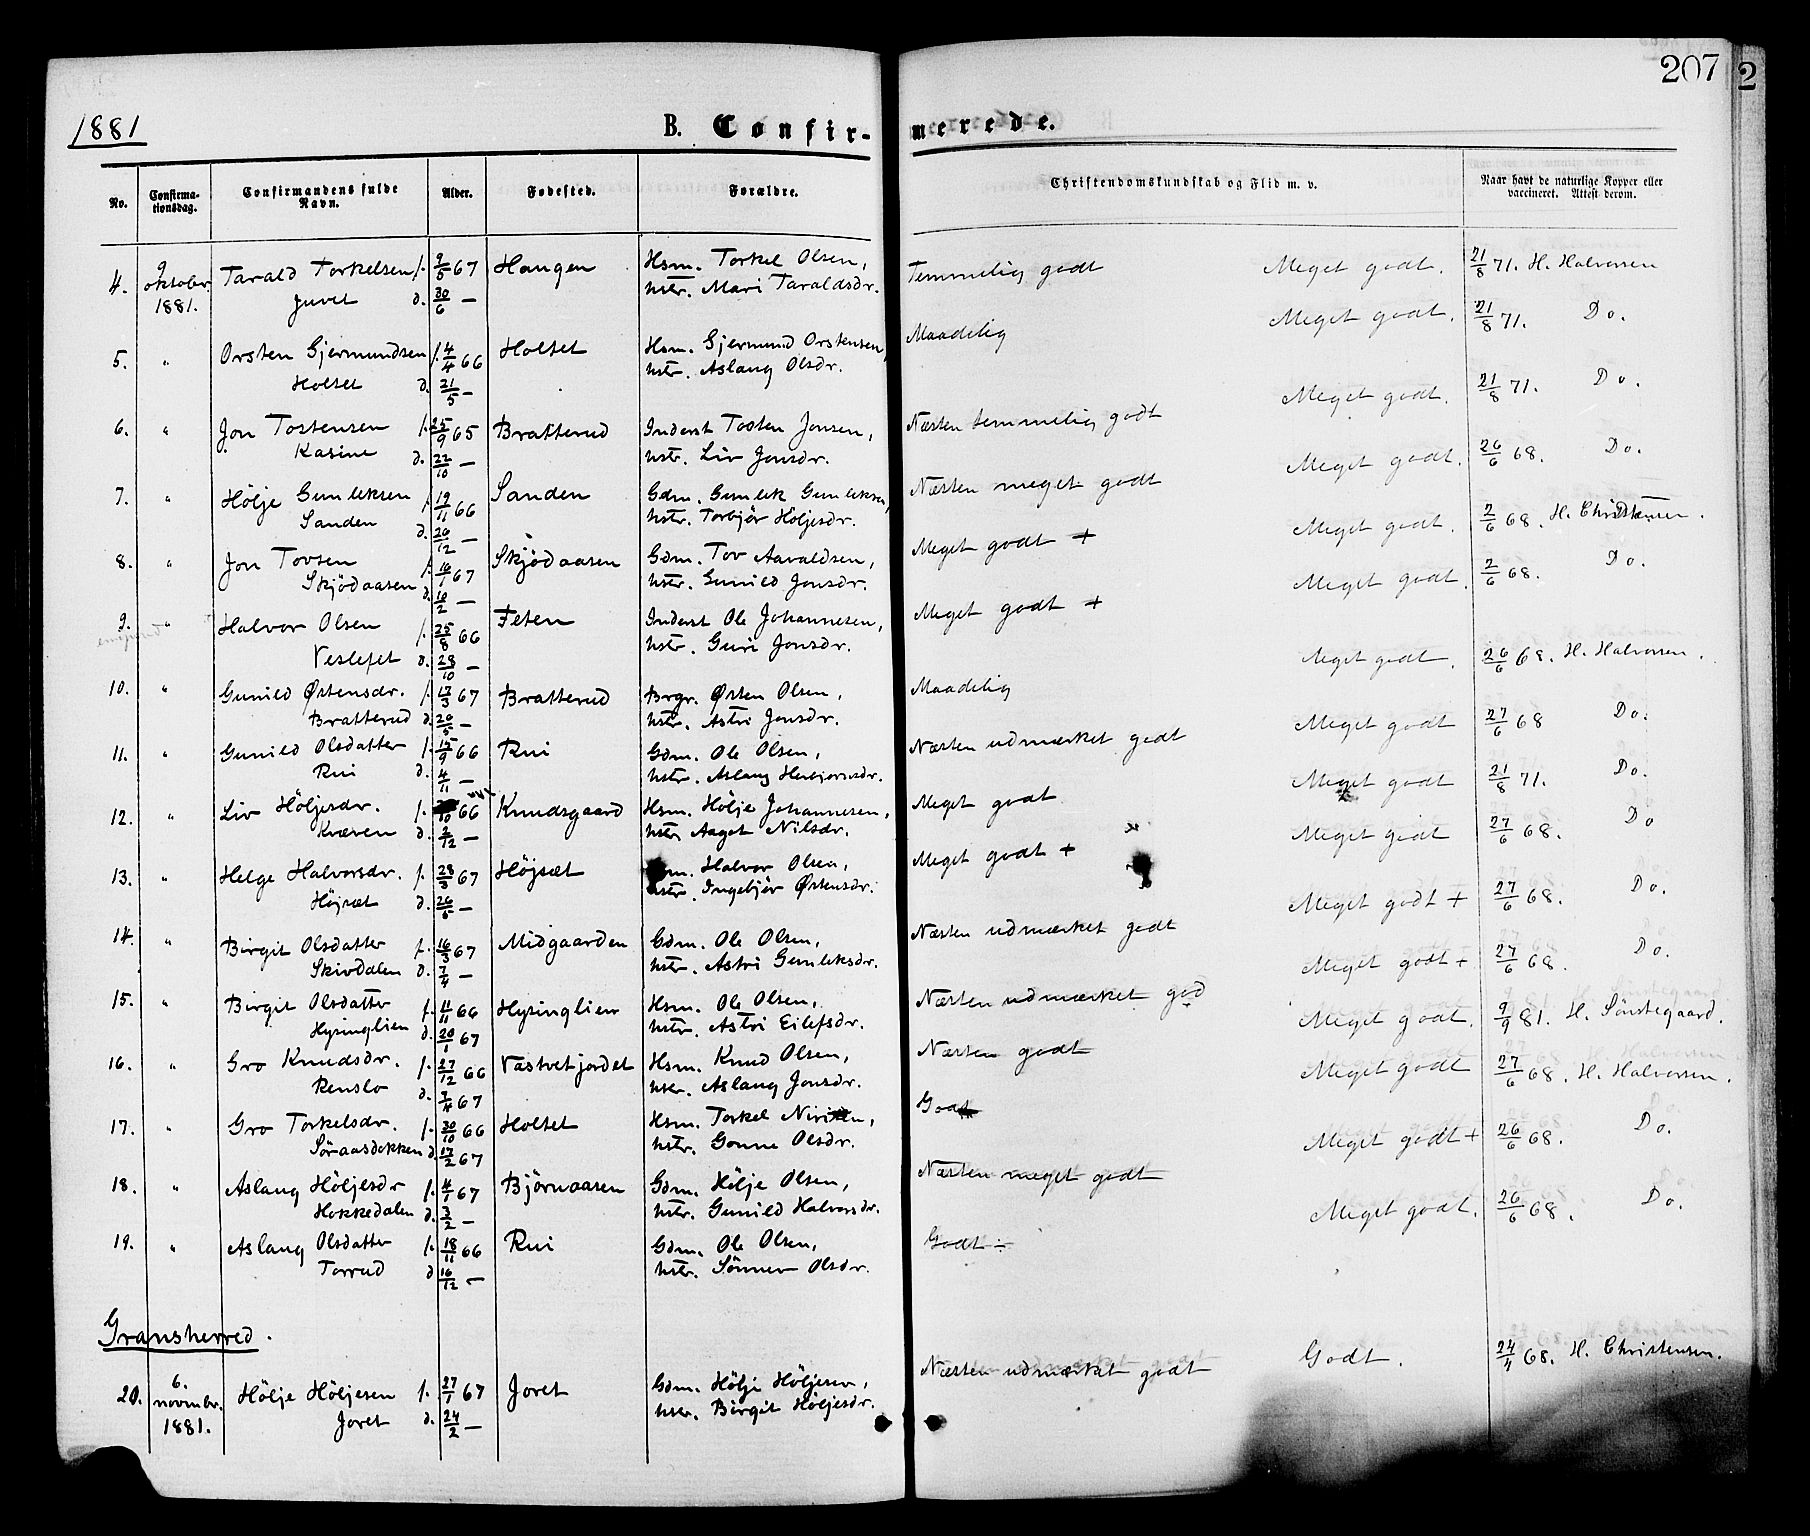 207
2
1881
B. Confirmerede.
No.
Confirmationsdag.
Confirmandens fulde Navn.
Alder.
Fødested.
Forældre.
Christendomskundskab og Flid m. v.
Naar havt de naturlige Kopper eller vaccineret. Attest derom.
4. 9 oktober 1881. Tarald Torkelsen f. 9/5 67 Haugen Hsm. Torkel Olsen, Temmelig godt Meget godt. 21/8 71. H. Halvorsen
Juvet d. 30/6 — hstr. Mari Taraldsdr.
5. " Orsten Gjermundsen f. 4/4 66 Holtet Hsm. Gjermund Orstensen, Maadelig Meget godt. 21/8 71. Do.
Holtet d. 21/5 — hstr. Aslaug Olsdr.
6. " Jon Tostensen f. 25/9 65 Bratterud Inderst Tosten Jonsen, Næsten temmelig godt Meget godt. 21/8 71. Do.
Kasine d. 22/10 — hstr. Liv Jonsdr.
7. " Hölje Gunleksen f. 19/11 66 Sanden Gdm. Gunlek Gunleksen, Næsten meget godt Meget godt. 26/6 68. Do.
Sanden d. 26/12 — hstr. Torbjör Höljesdr.
8. " Jon Tovsen f. 16/1 67 Skjödaasen Gdm. Tov Aavaldsen, Meget godt + Meget godt. 2/6 68. H. Christensen.
Skjödaasen d. 10/2 — hstr. Gunild Jonsdr.
9. " Halvor Olsen f. 25/8 66 Feten Inderst Ole Johannesen, Meget godt + Meget godt. 2/6 68. Do.
Veslefet d. 28/10 — hstr. Guri Jonsdr.
10. " Gunild Østensdr. f. 17/3 67 Bratterud Brgr. Østen Olsen, Maadelig Meget godt. 26/6 68. H. Halvorsen.
Bratterud d. 20/5 — hstr. Astri Jonsdr.
11. " Gunild Olsdatter f. 15/9 66 Rui Gdm. Ole Olsen, Næsten udmærket godt Meget godt 27/6 68 Do.
Rui d. 4/11 — hstr. Aslaug Herbjørnsdr.
12. " Liv Höljesdr. f. /10 66 Knudsgaard Hsm. Hölje Johannesen, Meget godt Meget godt 21/8 71. Do.
Kræven d. 2/12 — hstr Aaget Nilsdr.
13. " Helge Halvorsdr. f. 28/3 67 Höjsæt Halvor Olsen, Meget godt + Meget godt 27/6 68. Do
Höjsæt d. 26/5 — hstr. Ingebjör Østensdr.
14. " Birgit Olsdatter f. 16/3 67 Midgaarden Gdm. Ole Olsen, Næsten udmærket godt Meget godt + 27/6 68. Do.
Skivdalen d. 7/4 — hstr. Astri Gunleksdr.
15. " Birgit Olsdatter f. 11/11 66 Hysinglien Hsm. Ole Olsen, Næsten udmærket god Meget godt + 27/6 68. Do.
Hysinglien d. 20/1 67 hstr. Astri Eilefsdr.
16. " Gro Knudsdr. f. 27/12 66 Vastvetjordet Hsm. Knud Olsen, Næsten godt Meget godt. 9/9 81. H. Sönstegaard.
Renslo d. 7/4 67 hstr. Aslaug Jonsdr.
17. " Gro Torkelsdr. f. 30/10 66 Holtet Hsm. Torkel Godt Meget godt 27/6 68. H. Halvorsen.
Söraasdokken d. 17/2 67 hstr. Gonne Olsdr.
18. " Aslaug Höljesdr f. 4/1 67 Björnaasen Gdm. Hölje Olsen, Næsten meget godt Meget godt + 26/6 68. Do.
Hokkedalen d. 3/2 — hstr. Gunild Halvorsdr.
19. " Aslaug Olsdatter f. 18/11 66 Rui Gdm. Ole Olsen, Godt ÷ Meget godt. 26/6 68. Do.
Torrud d. 16/12 — hstr. Sönnev Olsdr.
Gransherred.
20. 6. novembr. 1881. Hölje Höljesen f. 27/1 67 Joret Gdm. Hölje Höljesen, Næsten udmærket godt Godt. 24/4 68. H. Christensen.
Joret d. 24/2 — hstr. Birgit Höljesdr.